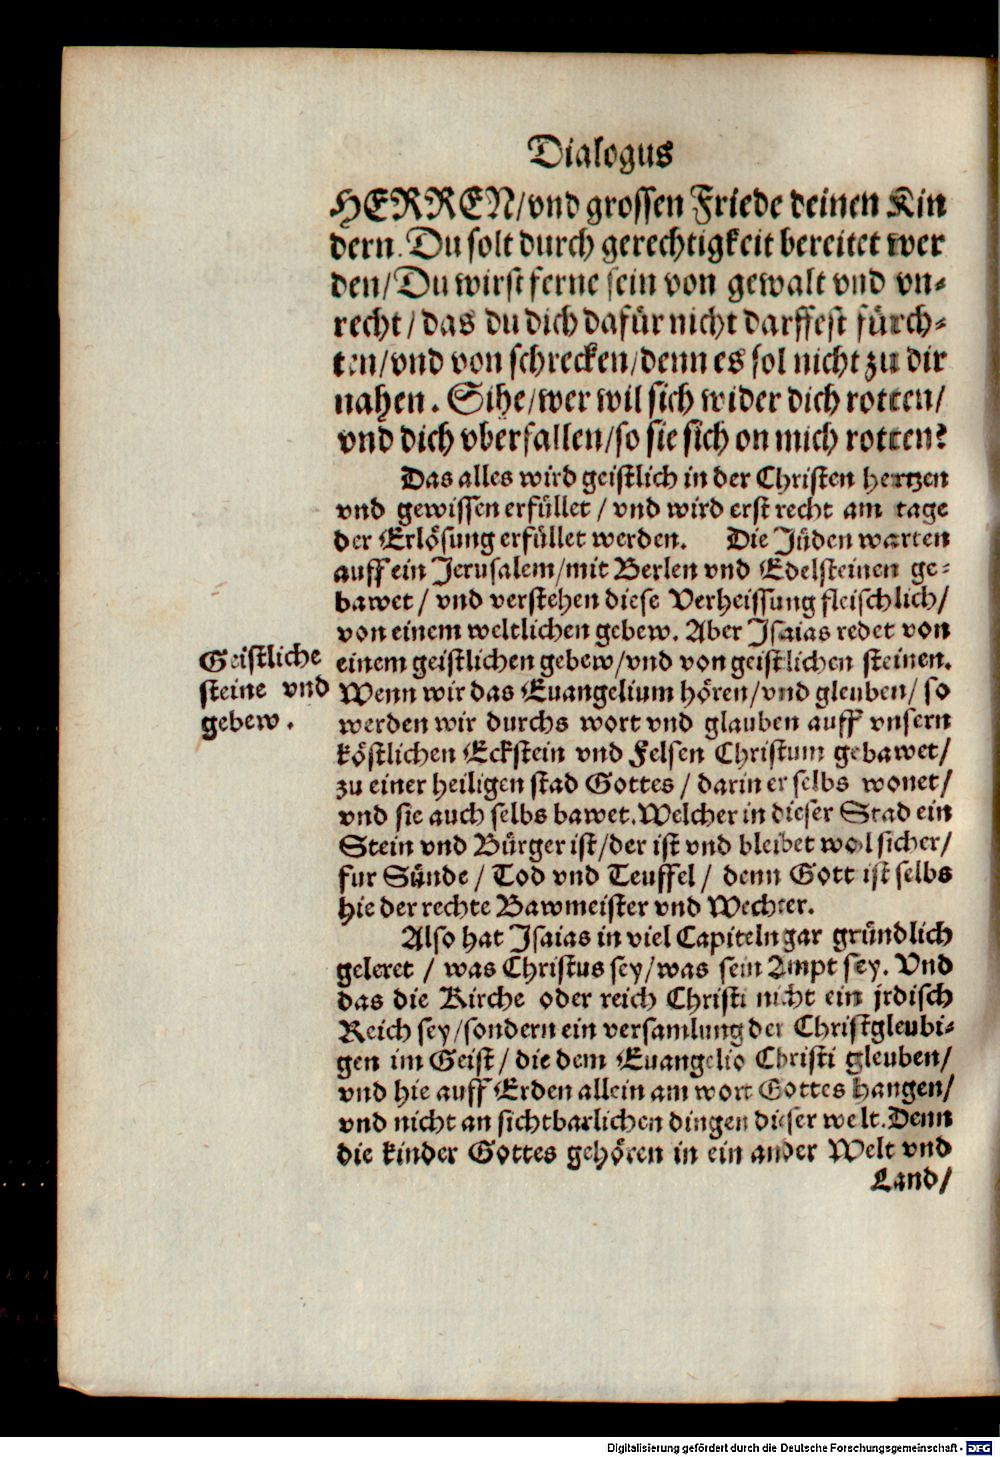 Dialogus
HERREN/vnd grossen Friede deinen Kin
dern. Du solt durch gerechtigkeit bereitet wer
den/Du wirst ferne sein von gewalt vnd vn-
recht/das du dich dafür nicht darffest fürch-
ten/vnd von schrecken/denn es sol nicht zu dir
nahen. Sihe/wer wil sich wider dich rotten/
vnd dich vberfallen/so sie sich on mich rotten?
Das alles wird geistlich in der Christen hertzen
vnd gewissen erfüllet/vnd wird erst recht am tage
der Erlösung erfüllet werden. Die Jüden warten
auff ein Jerusalem/mit Berlen vnd Edelsteinen ge-
bawet/vnd verstehen diese Verheissung fleischlich/
von einem weltlichen gebew. Aber Isaias redet von
einem geistlichen gebew/vnd von geistlichen steinen.
Geistliche
steine vnd
gebew.
Wenn wir das Euangelium hören/vnd gleuben/so
werden wir durchs wort vnd glauben auff vnsern
köstlichen Eckstein vnd Felsen Christum gebawet/
zu einer heiligen stad Gottes/darin er selbs wonet/
vnd sie auch selbs bawet. Welcher in dieser Stad ein
Stein vnd Bürger ist/der ist vnd bleibet wol sicher/
fur Sünde/Tod vnd Teuffel/denn Gott ist selbs
hie der rechte Bawmeister vnd Wechter.
Also hat Isaias in viel Capiteln gar gründlich
geleret/was Christus sey/was sein Ampt sey. Vnd
das die Kirche oder reich Christi nicht ein jrdisch
Reich sey/sondern ein versamlung der Christgleubi-
gen im Geist/die dem Euangelio Christi gleuben/
vnd hie auff Erden allein am wort Gottes hangen/
vnd nicht an sichtbarlichen dingen dieser welt. Denn
die kinder Gottes gehören in ein ander Welt vnd
Land/
Digitalisierung gefördert durch die Deutsche Forschungsgemeinschaft - DFG